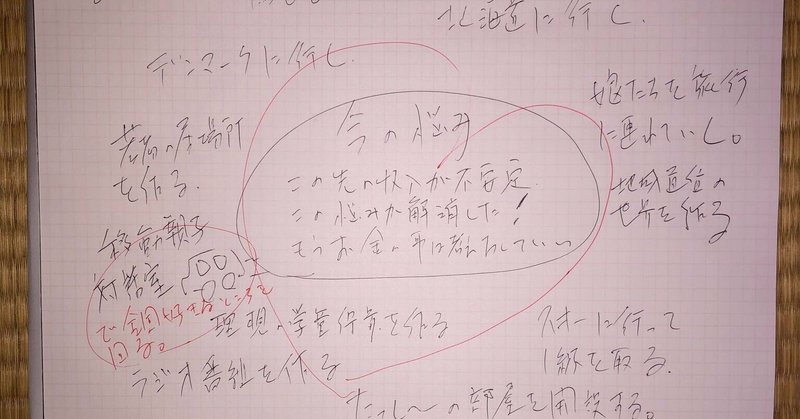 北海道に行く.
デンマークに行く.
若者の居場所
を作る.
今の悩み
この先の収入が不安定.
この悩みが解消した!
もうお金の事は考えなくていい
娘たちを旅行
に連れていく。
地域単位の
世界を作る
移動親子
で全国好きなところを
回る。
理想の学童保育を作る
ラジオ番組を作る
スキーに行って
1級を取る.
の部屋を開設する。